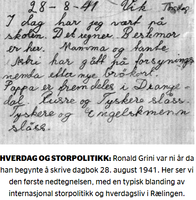 28-8-41 Vik Thorsdag
I dag har jeg vært på
skolen. Det regner. Bestemor
er her. Mamma og tante
Astri har gått på forsynings-
nemda etter nye brökort.
Pappa er fremdeles i Dramme-
dal. Russe og Tyskere slåss.
Tyskere og Engelskmenn
slåss.
HVERDAG OG STORPOLITIKK: Ronald Grini var ni år da
han begynte å skrive dagbok 28. august 1941. Her ser vi
den første nedtegnelsen, med en typisk blanding av
internasjonal storpolitikk og hverdagsliv i Rælingen.